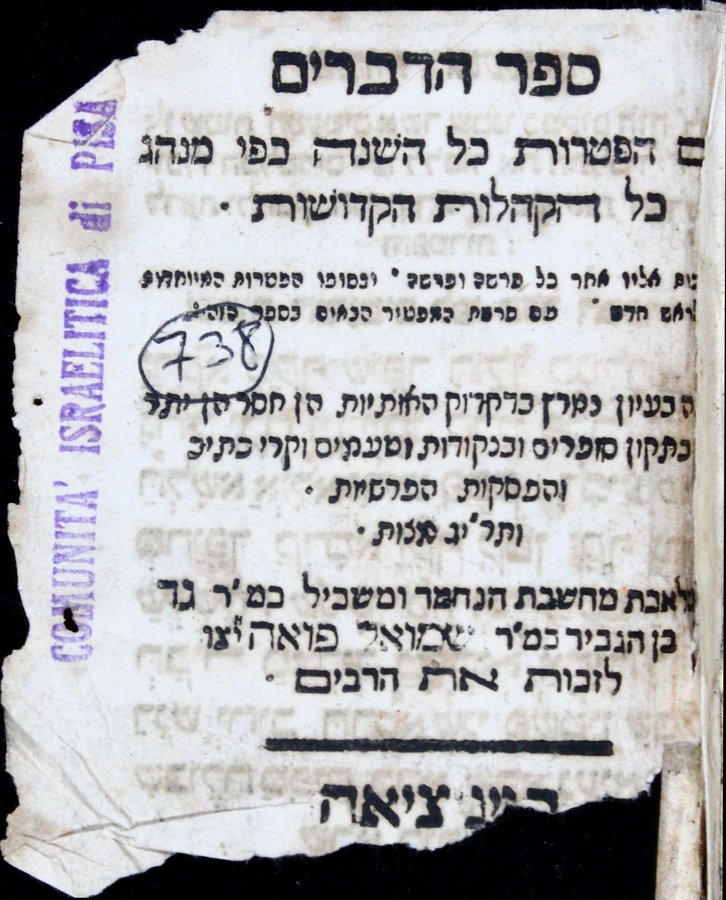 ספר הדברים
הפטרות כל השנה כפי מנהג
כל הקהלות הקדושות ·
אליו אחר כל פרשה ופרשה · ובסופו הפטרות המיוחדות
לראש חדש · עם פרשת המפטיר הבאים בספר הזה ·
738
בעיון נמרץ בדקדוק האותיות הן חסר הן יתר
בתקון סופרים ובנקודות וטעמים וקרי כתיב
והפסקות הפרשיות ·
ותרי"ג מצות ·
מלאכת מחשבת הנחמד ומשכיל כמ'ר גד
בן הגביר כמ'ר שמואל פואה יצו
לזכות את הרבים ·
ציאה
COMUNITA' ISRAELITICA di PISA